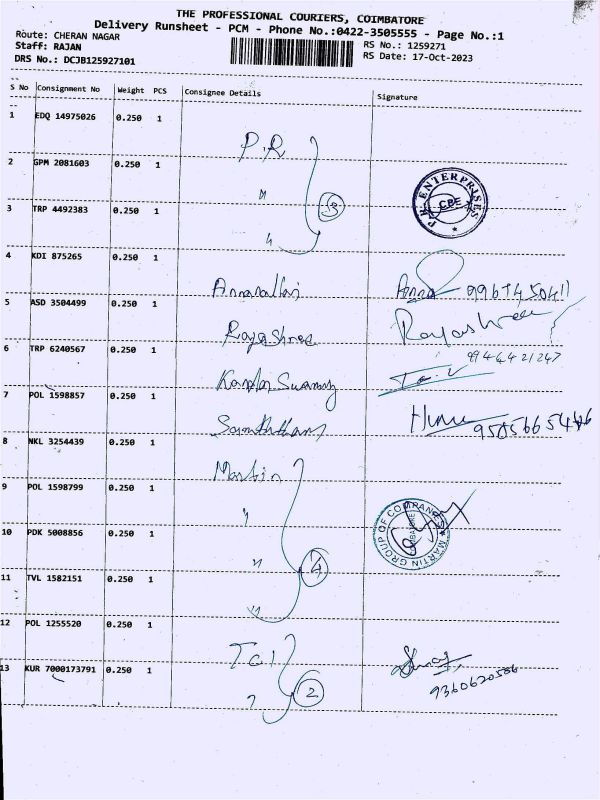 THE PROFESSIONAL COURIERS, COIMBATORE
Delivery Runsheet - PCM - Phone No.:0422-3505555 - Page No.:1
Route: CHERAN NAGAR RS No.: 1259271
Staff: RAJAN RS Date: 17-Oct-2023
DRS No.: DCJB125927101
S No Consignment No Weight PCS Consignee Details Signature
1 EDQ 14975026 0.250 1 P.R
2 GPM 2081603 0.250 1 "
P.R. ENTERPRISES CBE
3 TRP 4492383 0.250 1 " 3
4 KDI 875265 0.250 1 Annamalai Anna
5 ASD 3504499 0.250 1 Rajashree Rajashree
9944421247
6 TRP 6240567 0.250 1 Kanda Swamy
7 POL 1598857 0.250 1
8 NKL 3254439 0.250 1 Martin
9 POL 1598799 0.250 1 "
MARTIN GROUP OF COMPANIES COIMBATORE
10 PDK 5008856 0.250 1 " 4
11 TVL 1582151 0.250 1 "
12 POL 1255520 0.250 1
13 KUR 7000173791 0.250 1 " 2 9360620586